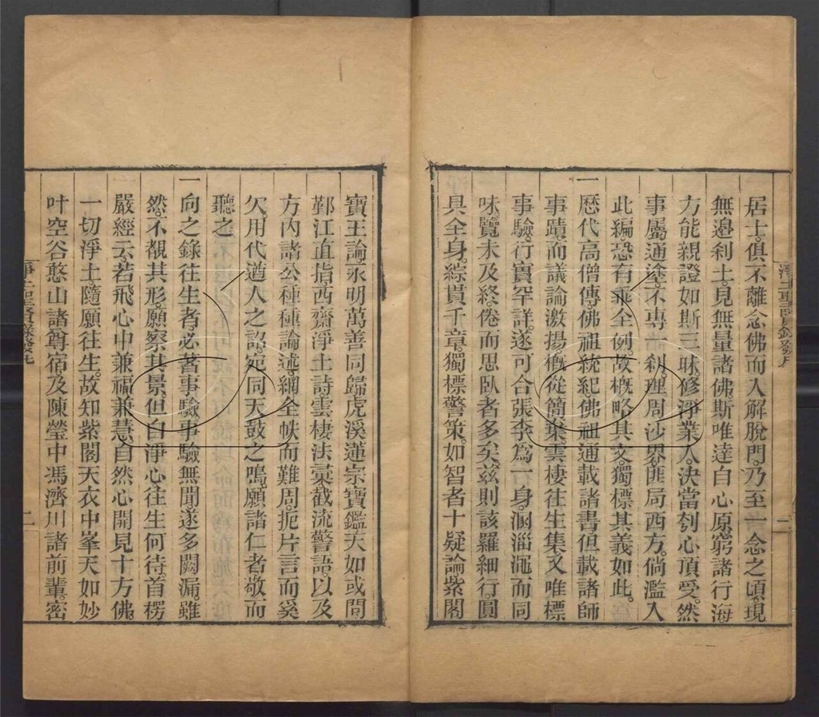 居士。俱不離念佛而入解脫門。乃至一念之頃。現
無邊剎土。見無量諸佛。斯唯達自心原。窮諸行海
方能親證如斯三昧。修淨業人。決當刳心頂受。然
事屬通途。不專一刹。理周沙界。匪局西方。倘濫入
此編。恐有乖全例。故槪略其文。獨標其義如此。
一歷代高僧傳。佛祖統紀。佛祖通載諸書。但載諸師
事蹟。而議論激揚槪從簡棄。雲棲往生集。又唯標
事驗。行實罕詳。遂可合張李爲一身。溷淄澠而同
味。覽未及終。倦而思臥者多矣。茲則該羅細行。圓
具全身。綜貫千章。獨標警策。如智者十疑論。紫閣
寶王論。永明萬善同歸。虎溪蓮宗寶鑑。天如或問
鄞江直指。西齋淨土詩。雲棲法彚。截流警語。以及
方內諸公種種論述。網全帙而難周。扼片言而奚
欠。用代遒人之認。宛同天鼓之鳴。願諸仁者敬而
聽之
一向之錄往生者。必著事驗。事驗無聞。遂多闕漏。雖
然。不覩其形。願察其景。但自淨心往生何待。首楞
嚴經云。若飛心中。兼福兼慧。自然心開。見十方佛。
一切淨土。隨願往生。故知紫閣天衣中峯天如妙
叶空谷憨山諸尊宿。及陳瑩中馮濟川諸前輩。密
二